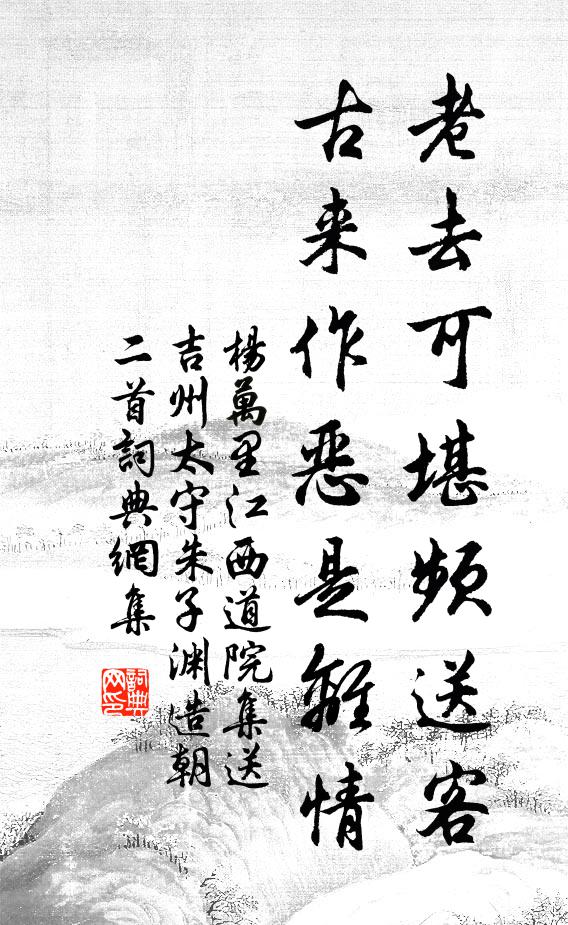 老去可堪頻送客
古来作恶是離情
楊萬里江西道院集送
吉州太守朱子渊造朝
二首詞典網集
詞典
网印